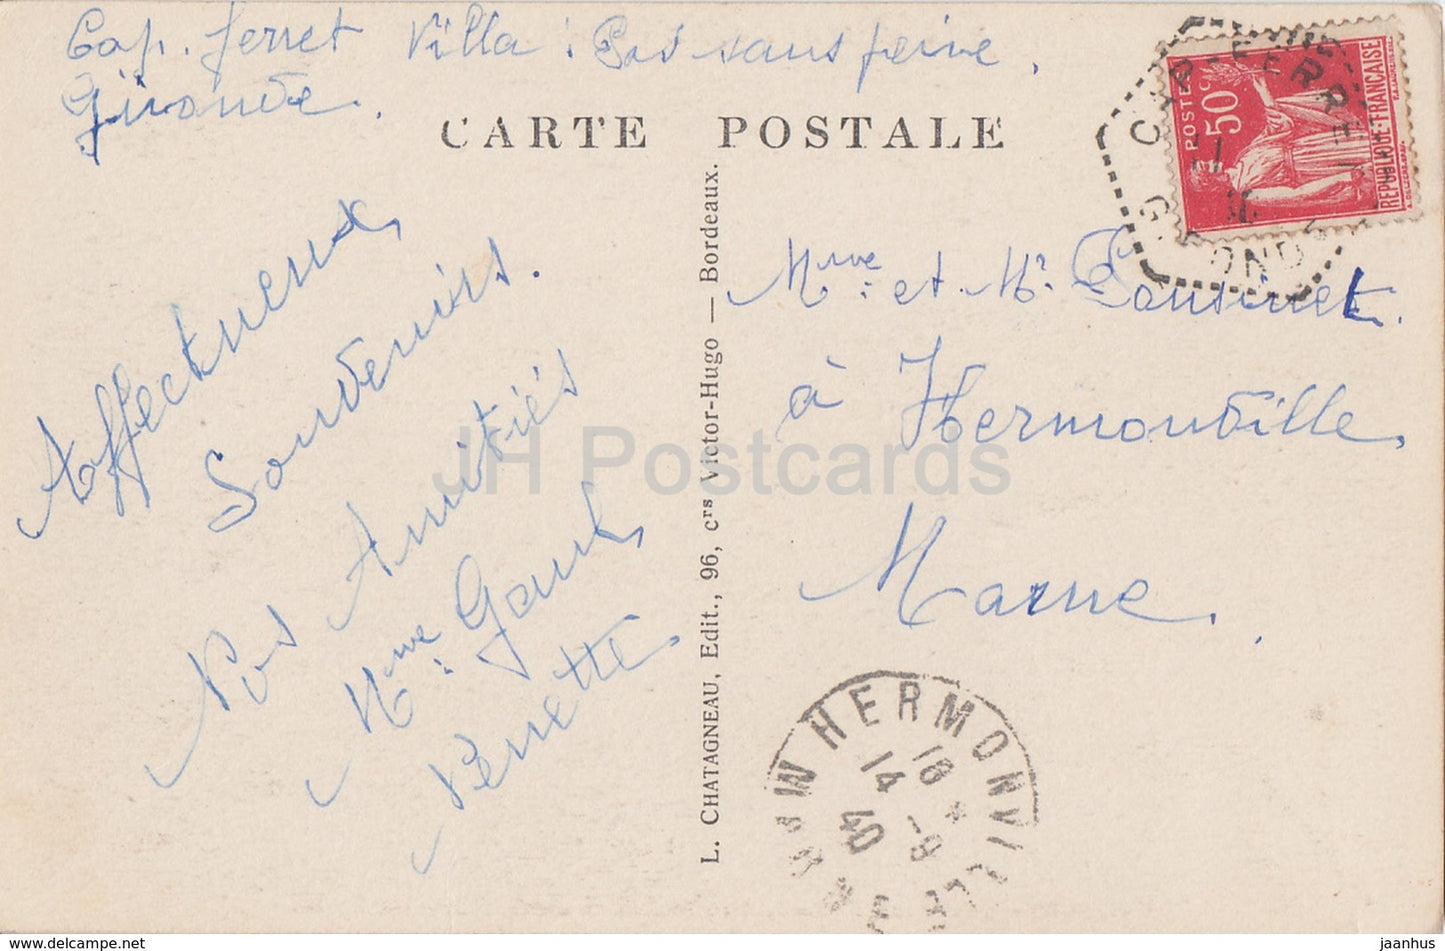 Cap. ferret Villa : Pas sans peine.
Gironde.
CARTE POSTALE
Affectueux
Souvenirs.
Nos Amitiés
Mme Gaul,
Perrette.
L. CHATAGNEAU, Edit., 96, crs Victor-Hugo — Bordeaux.
POSTES
50c
REPUBLIQUE FRANÇAISE
CAP-FERRET
GIRONDE
Mme et Mr Ponsinet.
à Hermonville,
Marne.
HERMONVILLE
MARNE
18 *
14 -9
40
JH Postcards
jaanhus